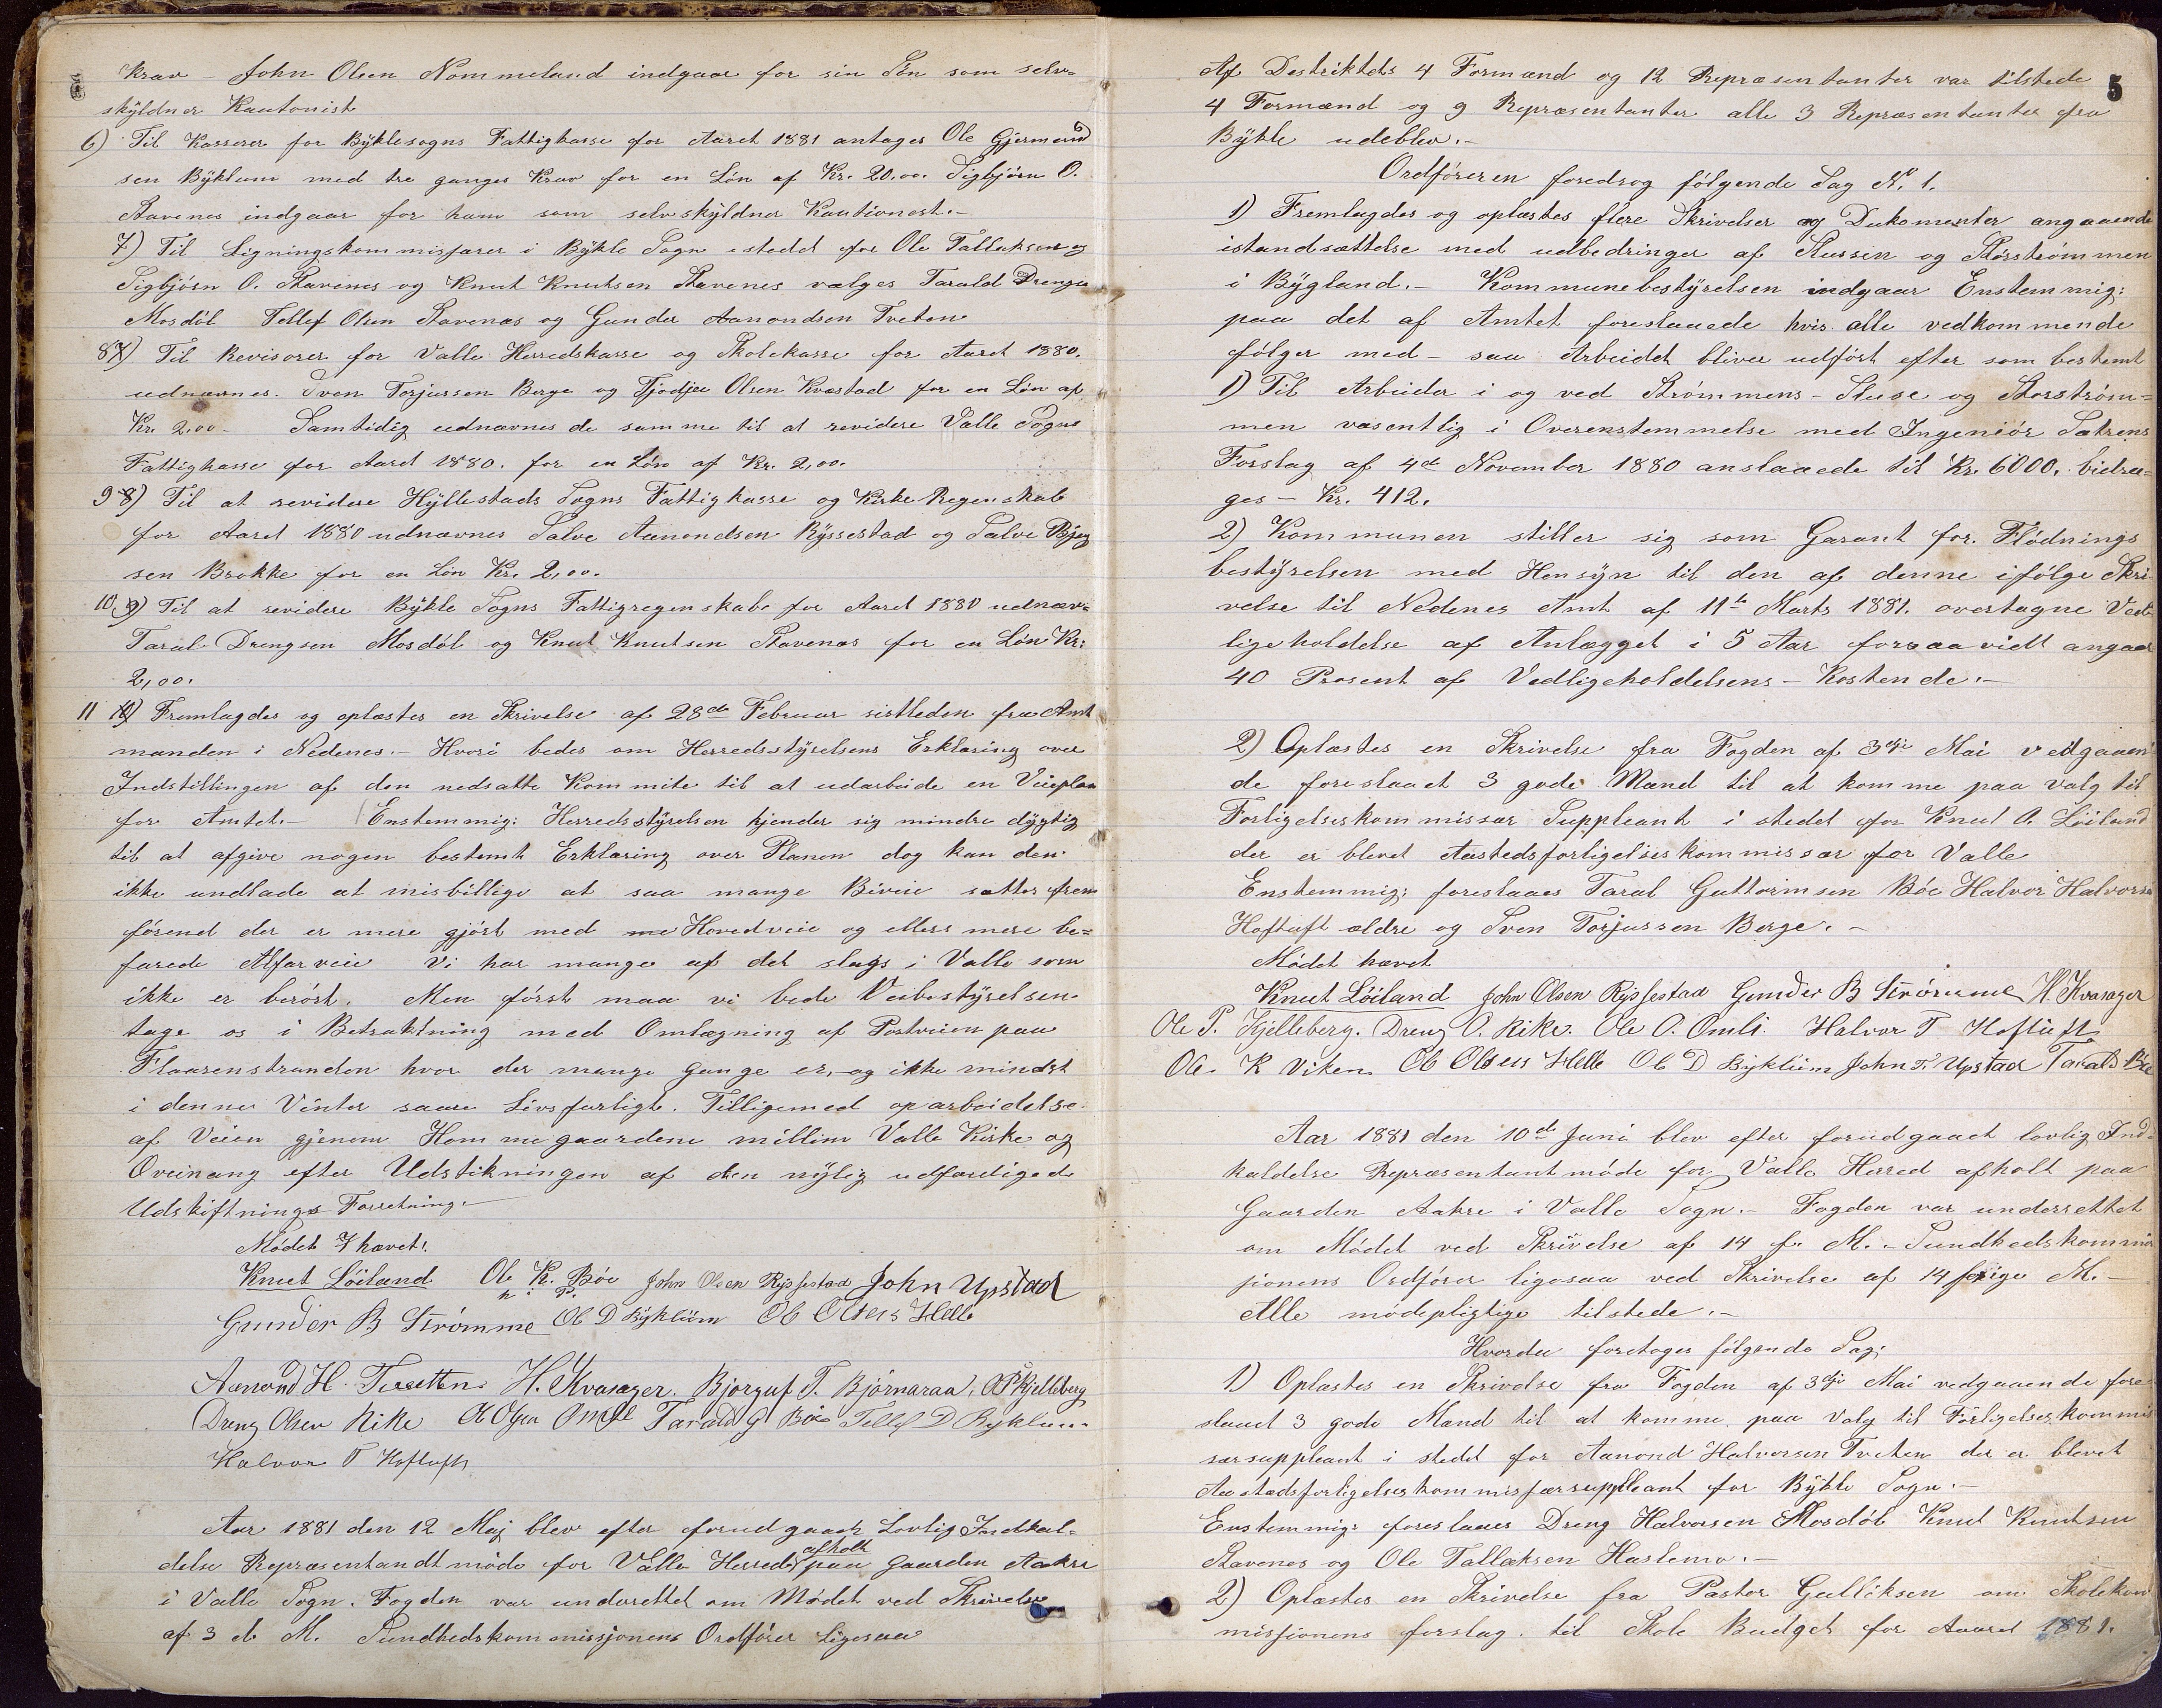 Krav – John Olsen Nommeland indgaar for sin Sön som selv-
skyldner Kautonist
6) Til Kasserer for Byklesogns Fattigkasse for Aaret 1881 antages Ole Gjermund
sen Byklum med tre ganges Krav for en Lön af Kr. 20.00. Sigbjörn O.
Stavenes indgaar for ham som selvskyldner Kautionest.-
7) Til Ligningskommisjærer i Bykle Sogn istedet for Ole Tallaksen og
Sigbjörn O. Stavenes og Knut Knutsen Stavenes vælges Tarald Drengsen
Mosdöl Tellef Olsen Stavenæs og Gunder Aanondsen Tveten
8 7) Til Revisorer for Valle Herredskasse og Skolekasse for Aaret 1880.
udnævnes. Sven Torjussen Berge og Tjodjer Olsen Kvæstad for en Lön af
Kr. 2.00 – Samtidig udnævnes de samme til at revidere Valle Sogns
Fattigkasse for Aaret 1880. for en Lön af Kr. 2,00.
9 8) Til at revidere Hyllestads Sogns Fattigkasse og Kirke Regenskab
for Aaret 1880 udnævnes Salve Aanondsen Ryssestad og Salve Bjug
sen Brokke for en Lön Kr. 2,00.
10. 9) Til at revidere Bykle Sogns Fattigregenskabe for Aaret 1880 udnæv-
Taral Drengsen Mosdöl og Knut Knutsen Stavenæs for en Lön Kr:
2,00.
11 10) Fremlagdes og oplæstes en Skrivelse af 28de Februar sistleden fra Amt
manden i Nedenes.- Hvori bedes om Herredsstyrelsens Erklæring over
Indstillingen af den nedsatte Kommite til at udarbeide en Veieplan
for Amtet.- Enstemmig: Herredsstyrelsen kjender sig mindre dygtig
til at afgive nogen bestemt Erklæring over Planen dog kan den
ikke undlade at misbillige at saa mange Biveie sættes frem
förend der er mere gjört med me Hovedveie og ellers mere be-
farede Alfarveie Vi har mange af det slags i Valle som
ikke er berört. Men först maa vi bede Veibestyrelsen
tage os i Betraktning med Omlægning af Postveien paa
Flaarenstranden hvor der mange gange er, og ikke mindst
i denne Vinter saare Livsfarligt. Tilligemed oparbeidelse
af Veien gjenem Hommegaardene millim Valle Kirke og
Oveinang efter Udstikningen af den nylig udfærdigede
Udskiftnings Forretning.-
Mödet hævet.
Knut Löiland Ole K. Böe John Olsen Rysstad John Upstad
Gunder B Strömme Ole D Byklum Ole Olsen Helle
Aanond H. Tveten H. Kvasager. Bjorguf T. Björnaraa, O P Kjelleberg
Dreng Olsen Rike Ole Olsen Omli Tarald G Böe Tellef D Byklum
Halvor T Hoftuft
Aar 1881 den 12 Maj blev efter forud gaaet Lovlig Indkal-
delse Repræsentandtmöde for Valle Herred afholt paa gaarden Aakre
i Valle Sogn. Fogden var underettet om Mödet ved Skrivelse
af 3 d. M. Sundhedskommissjonens Ordförer Ligesaa
5
Af Destriktets 4 Formænd og 12 Repræsentanter var tilstede
4 Formænd og 9 Repræsentanter alle 3 Repræsentanter fra
Bykle udeblev.-
Ordföreren foredrog fölgende Sag N. 1.
1) Fremlagdes og oplæstes flere Skrivelser og Dukomenter angaaende
istandsættelse med udbedringer af Slussen og Storströmmen
i Bygland.- Kommunebestyrelsen indgaar Enstemmig:
paa det af Amtet foreslaaede hvis alle vedkommende
fölger med – saa Arbeidet bliver udfört efter som bestemt
1) Til Arbeider i og ved Strömmens-Sluse og Storström=
men væsentlig i Overenstemmelse med Ingeniör Sætrens
Forslag af 4de November 1880 anslaaede til Kr. 6000. bidra-
ges – Kr. 412.
2) Kommunen stiller sig som Garant for. Flödnings
bestyrelsen med Hensyn til den af denne ifölge Skri
velse til Nedenes Amt af 11te Marts 1881. overtagne Ved
ligeholdelse af Anlægget i 5 Aar forsaavidt angaar
40 Prosent af Vedligeholdelsens-Kostende.-
2) Oplæstes en Skrivelse fra Fogden af 3dje Mai vedgaaen
de foreslaaet 3 gode Mænd til at komme paa valg til
Forligelseskommissær Suppleant i stedet for Knut O. Löiland
der er blevet Aastedsforligelseskommissær for Valle
Enstemmig: foreslaaes Taral Guttormsen Böe Halvor Halvorsen
Hoftuft ældre og Sven Torjussen Berge.-
Mödet hævet
Knut Löiland John Olsen Rysstad Gunder B Strömme H. Kvasager
Ole P. Kjelleberg. Dreng O. Rike. Ole O. Omli. Halvor T Hoftuft
Ole K Viken Ole Olsen Helle Ole D Byklum John T. Upstad Tarald Böe
Aar 1881 den 10de Juni blev efter forudgaaet lovlig Ind-
kaldelse Repræsentantmöde for Valle Herred afholt paa
Gaarden Aakre i Valle Sogn.- Fogden var underrettet
om Mödet ved Skrivelse af 14 f. M.- Sundhedskommis
sjonens Ordförer ligesaa ved Skrivelse af 14 forige M.-
Alle mödepligtige tilstede.-
Hvorder foretoges fölgende Sag:
1) Oplæstes en Skrivelse fra Fogden af 3dje Mai vedgaaende fore
slaaet 3 gode Mænd til at komme paa Valg til Forligelseskommis
særsuppleant i stedet for Aanond Halvorsen Tveten der er blevet
Aastadsforligelseskommisjærsuppleant for Bykle Sogn.-
Enstemmig: foreslaaes Dreng Halvorsen Mosdöl Knut Knutsen
Stavenes og Ole Tallaksen Haslemo.-
2) Oplæstes en Skrivelse fra Pastor Gulliksen om Skolekom
missionens forslag til Skole Budget for Aaret 1881.